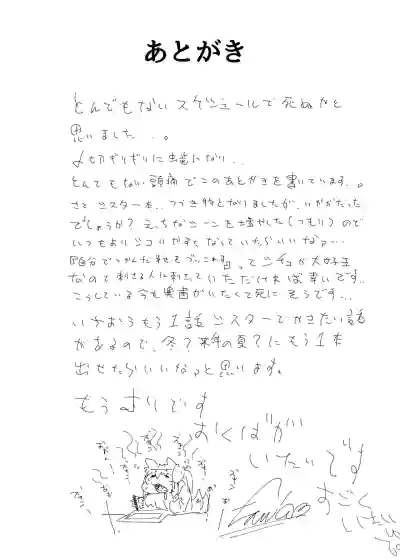 あとがき
とんでもないスケジュールで死ぬかと
思いました。。
〆切ギリギリに虫歯になり..
とんでもない頭痛でこのあとがきを書いています。。
さてシスター本..つづき物となりましたが、いかがだった
でしょうか?えっちなシーンを増やした(つもり)ので
いつもよりシコりやすくなっていたらいいなっ...
って シチュが大好き
なので刺さる人に刺さっていただければ幸いです..
こうしている今も奥歯がいたくて死にそうです...
いちおうもう1話シスターでかきたい話
があるので、冬?来年の夏?にもう1本
出せたらいいなっと思います。
もうムリです
おくばが
いたいです
すごく
いたい